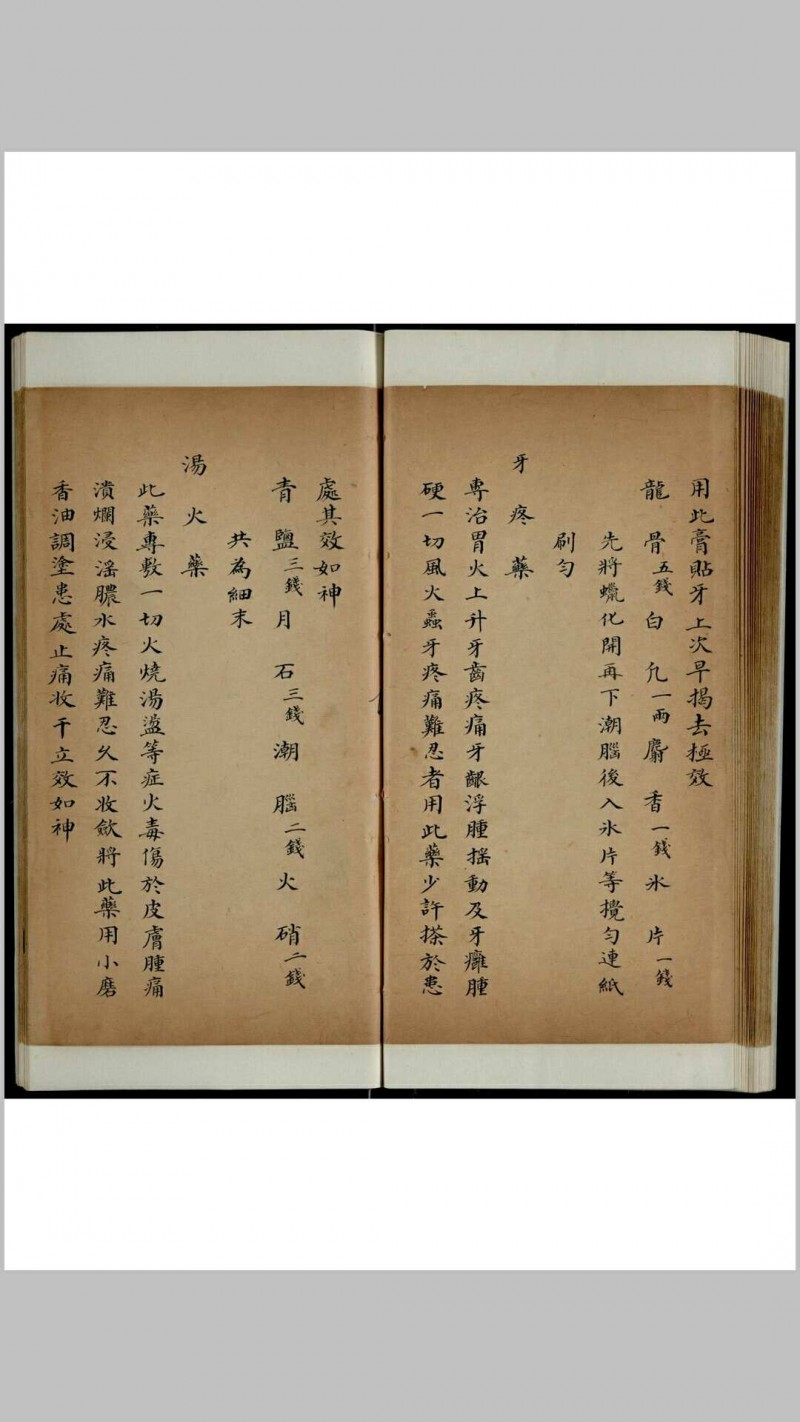 用此膏貼牙上次早揭去極效
龍骨五錢白凣一兩麝香一錢氷片一錢
先將蠟化開再下潮腦後入氷片等攪勻連紙
刷勻
牙疼藥
専治胃火上升牙齒疼痛牙齦浮腫搖動及牙癰腫
硬一切風火蟲牙疼痛難忍者用此藥少許搽於患
處其效如神
青鹽三錢月石三錢潮腦二錢火硝二錢
共為細末
湯火藥
此藥專敷一切火燒湯盪等症火毒傷於皮膚腫痛
潰爛浸滛膿水疼痛難忍久不收斂將此藥用小磨
香油調塗患處止痛收干立效如神